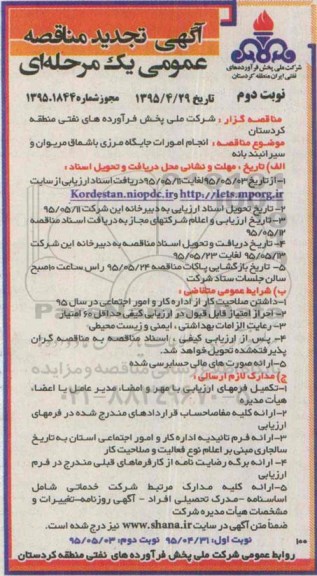 آگهی تجدید مناقصه
عمومی یک مرحله‌ای
شرکت ملی پخش فرآورده های
نفتی ایران منطقه کردستان
نوبت دوم
تاریخ ۱۳۹۵/۴/۲۹
مجوز شماره ۱۳۹۵.۱۸۴۴
مناقصه گزار : شرکت ملی پخش فرآورده های نفتی منطقه
کردستان
موضوع مناقصه : انجام امورات جایگاه مرزی باشماق مریوان و
سیرانبند بانه
الف) تاریخ ، مهلت و نشانی محل دریافت و تحویل اسناد :
۱- از تاریخ ۹۵/۰۵/۰۳ لغایت ۹۵/۰۵/۱۱ دریافت اسناد ارزیابی از سایت
Kordestan.niopdc.ir و http://iets.mporg.ir
۲- تاریخ تحویل اسناد ارزیابی به دبیرخانه این شرکت ۹۵/۰۵/۱۱
۳- تاریخ ارزیابی و اعلام شرکتهای مجاز به دریافت اسناد مناقصه
۹۵/۰۵/۱۲
۴- تاریخ دریافت و تحویل اسناد مناقصه به دبیرخانه این شرکت
۹۵/۰۵/۱۳ لغایت ۹۵/۰۵/۲۳
۵- تاریخ بازگشایی پاکات مناقصه ۹۵/۰۵/۲۴ راس ساعت ۱۰ صبح
سالن جلسات ستاد شرکت
ب) شرایط عمومی متقاضی :
۱- داشتن صلاحیت کار از اداره کار و امور اجتماعی در سال ۹۵
۲- احراز امتیاز قابل قبول در ارزیابی کیفی حداقل ۶۰ امتیاز
۳- رعایت الزامات بهداشتی ، ایمنی و زیست محیطی
۴- پس از ارزیابی کیفی ، اسناد مناقصه به مناقصه گران
پذیرفته شده تحویل خواهد شد.
۵- ارائه صورت های مالی حسابرسی شده
ج) مدارک لازم ارسالی :
۱- تکمیل فرمهای ارزیابی با مهر و امضاء مدیر عامل یا اعضاء
هیأت مدیره
۲- ارائه کلیه مفاصاحساب قراردادهای مندرج شده در فرمهای
ارزیابی
۳- ارائه فرم تائیدیه اداره کار و امور اجتماعی استان به تاریخ
سال جاری مبنی بر اعلام نوع فعالیت و صلاحیت کار
۴- ارائه برگه رضایت نامه از کارفرماهای قبلی مندرج در فرم
ارزیابی
۵- ارائه کلیه مدارک مرتبط شرکت خدماتی شامل
اساسنامه - مدرک تحصیلی افراد - آگهی روزنامه - تغییرات و
مشخصات هیأت مدیره شرکت
ضمناً متن آگهی در سایت www.shana.ir نیز درج شده است.
نوبت اول: ۹۵/۰۴/۳۱ نوبت دوم: ۹۵/۰۵/۰۳
۱۰۰
روابط عمومی شرکت ملی پخش فرآورده های نفتی منطقه کردستان